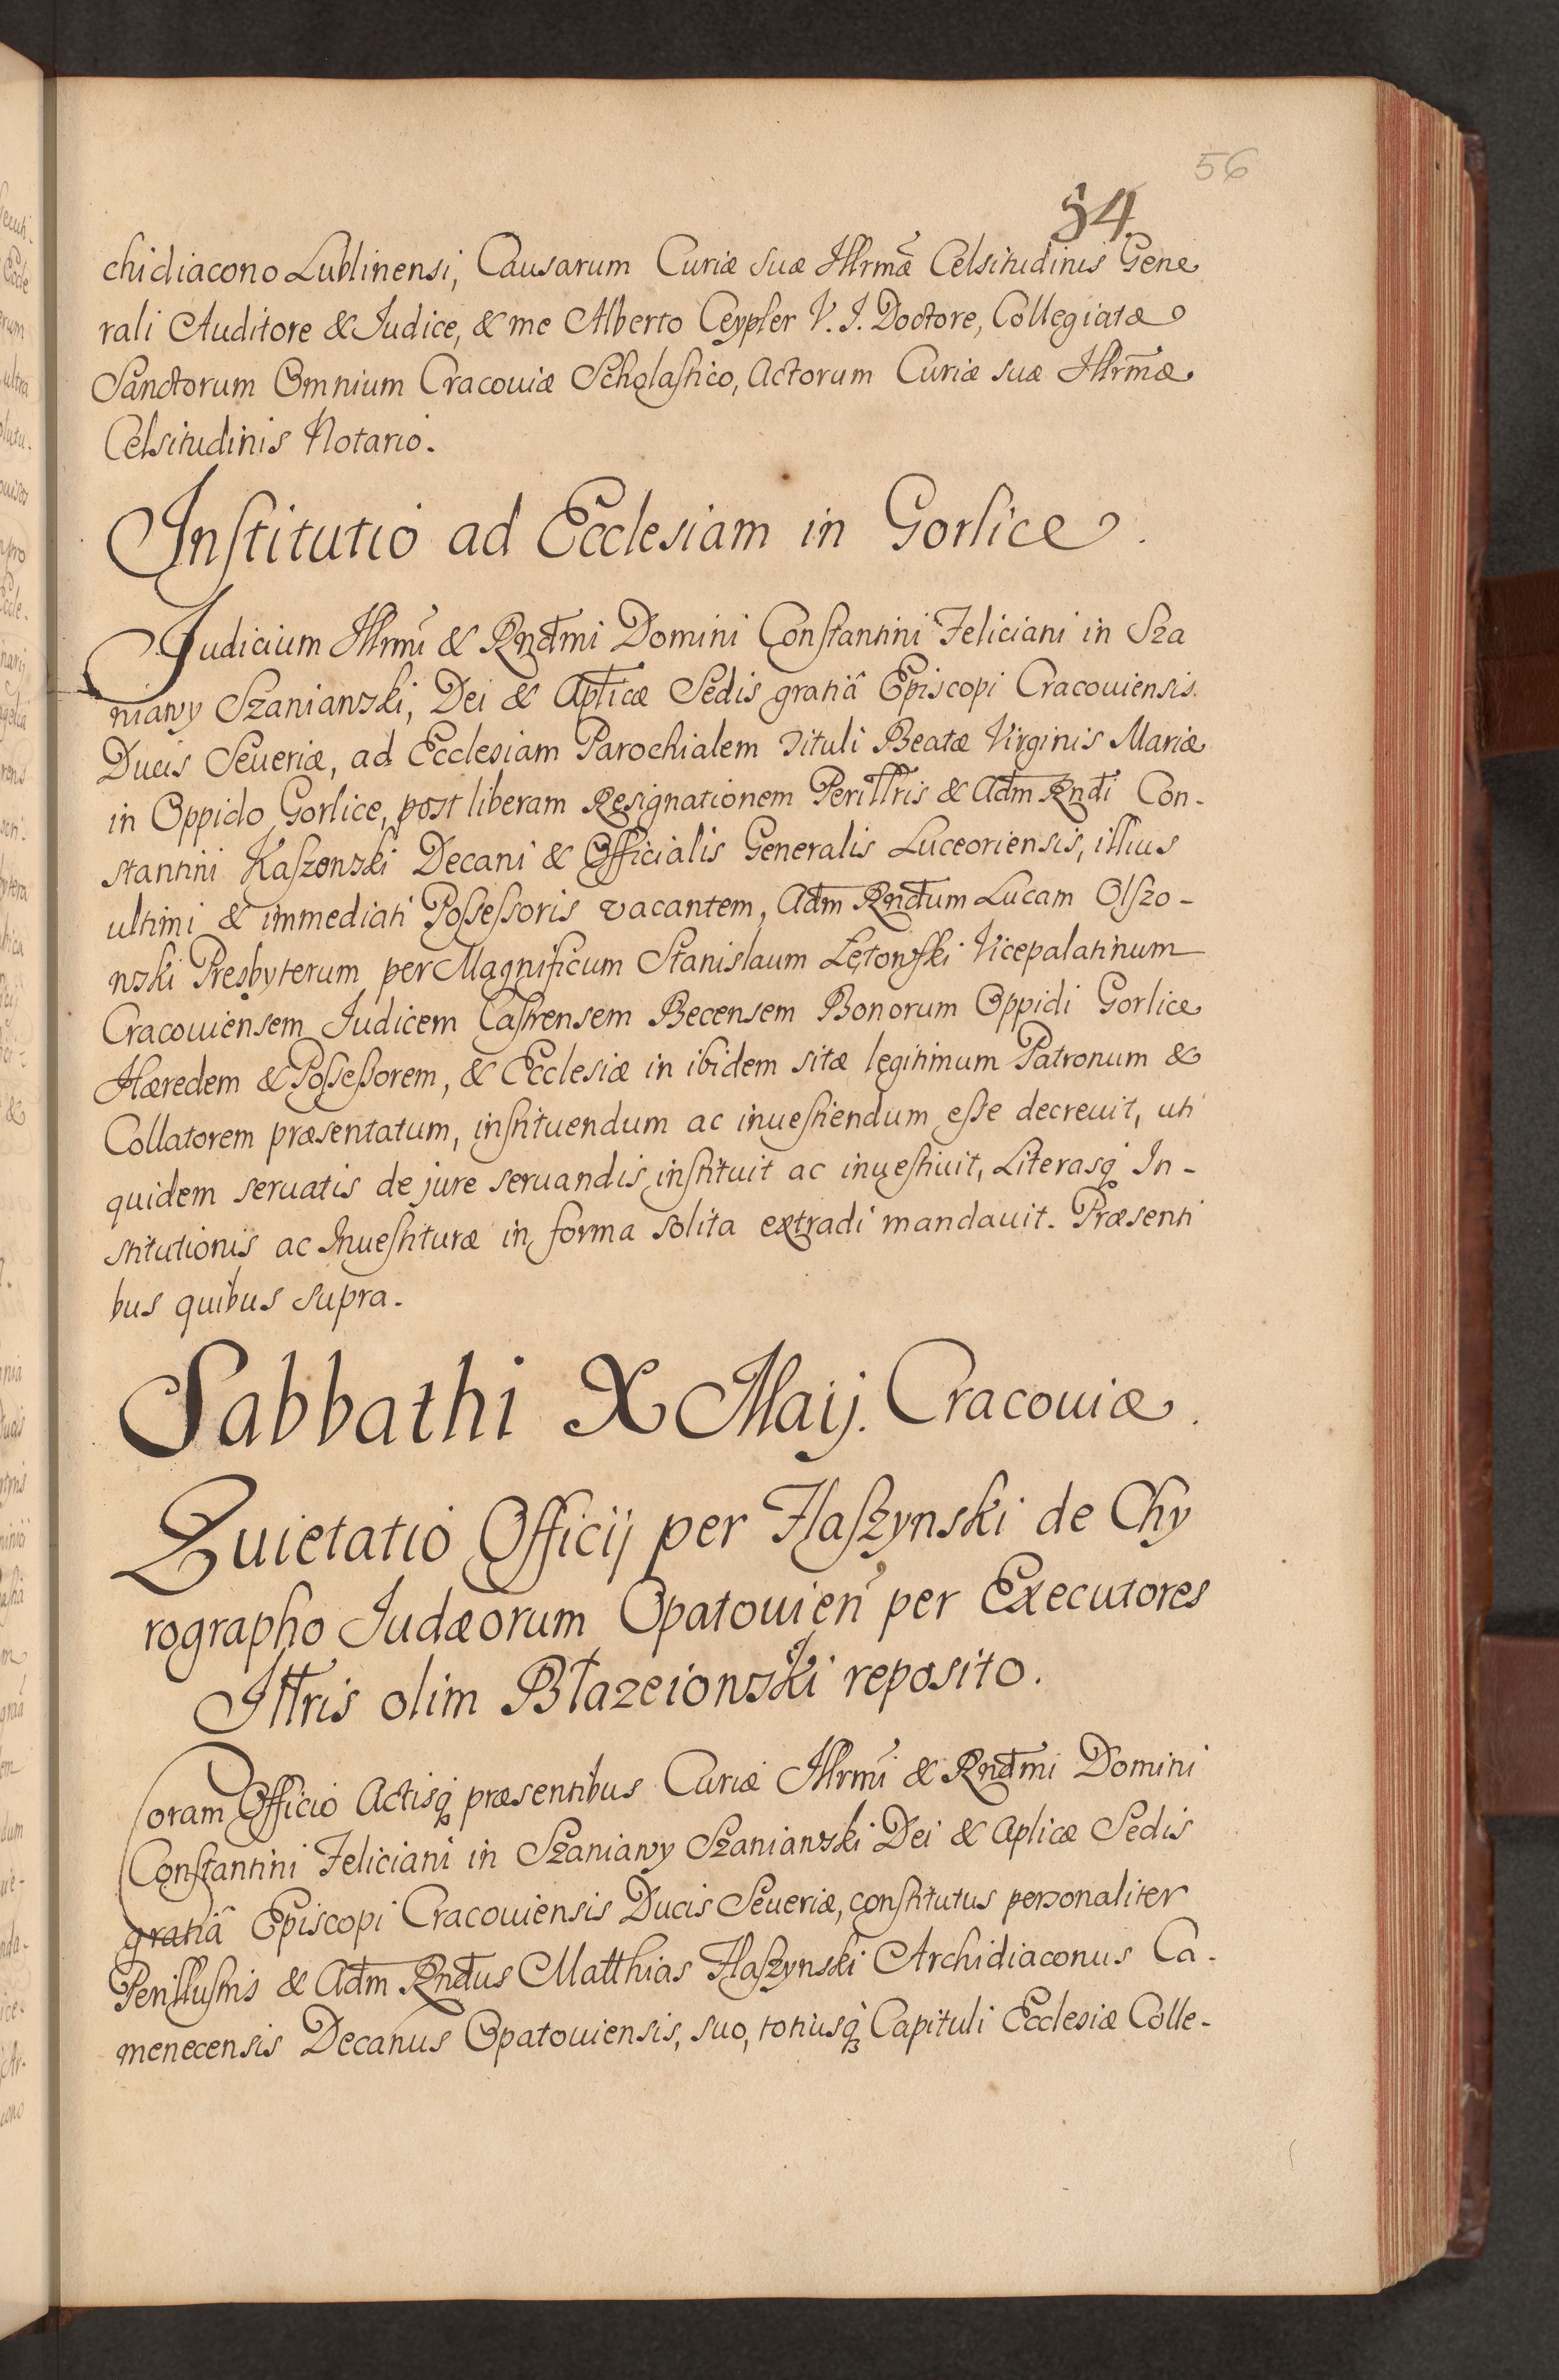 56
54
chidiacono Lublinensi, Causarum Curiæ suæ Illrmæ̃ Celsitudinis Gene
rali Auditore & Judice, & me Alberto Ceypler V. J. Doctore, Collegiatæ
Sanctorum Omnium Cracouiæ Scholastico, Actorum Curiæ suæ Illrm̃æ
Celsitudinis Notario.
Institutio ad Ecclesiam in Gorlice.
Judicium Illrmi & Rnd̃mi Domini Constantini Feliciani in Sza
niawy Szaniawski, Dei & Apl̃icæ Sedis gratiâ Episcopi Cracouiensis
Ducis Seueriæ, ad Ecclesiam Parochialem tituli Beatæ Virginis Mariæ
in Oppido Gorlice, post liberam Resignationem Perill̃ris & Ad̃m Rnd̃i Con-
stantini Kaszowski Decani & Officialis Generalis Luceoriensis, illius
ultimi & immediati Possessoris vacantem, Ad̃m Rnd̃um Lucam Olszo-
wski Presbyterum per Magnificum Stanislaum Łętowski Vicepalatinum
Cracouiensem Judicem Castrensem Becensem Bonorum Oppidi Gorlice
Hæredem & Possessorem, & Ecclesiæ in ibidem sitæ legitimum Patronum &
Collatorem præsentatum, instituendum ac inuestiendum esse decreuit, uti
quidem seruatis de jure seruandis instituit ac inuestiuit, Literasq̃ In-
stitutionis ac Inuestituræ in forma solita extradi mandauit. Præsenti
bus quibus supra.
Sabbathi X Maij. Cracouiæ.
Quietatio Officij per Flaszynski de Chy
rographo Judæorum Opatouien̓ per Executores
Ill̃ris olim Błazeiowski reposito.
Coram Officio Actisq̃ præsentibus Curiæ Illrmi & Rnd̃mi Domini
Constantini Feliciani in Szaniawy Szaniawski Dei & Aplicæ Sedis
gratiâ Episcopi Cracouiensis Ducis Seueriæ, constitutus personaliter
Perillustris & Ad̃m Rnd̃us Matthias Flaszynski Archidiaconus Ca-
menecensis Decanus Opatouiensis, suo, totiusq̃ Capituli Ecclesiæ Colle-